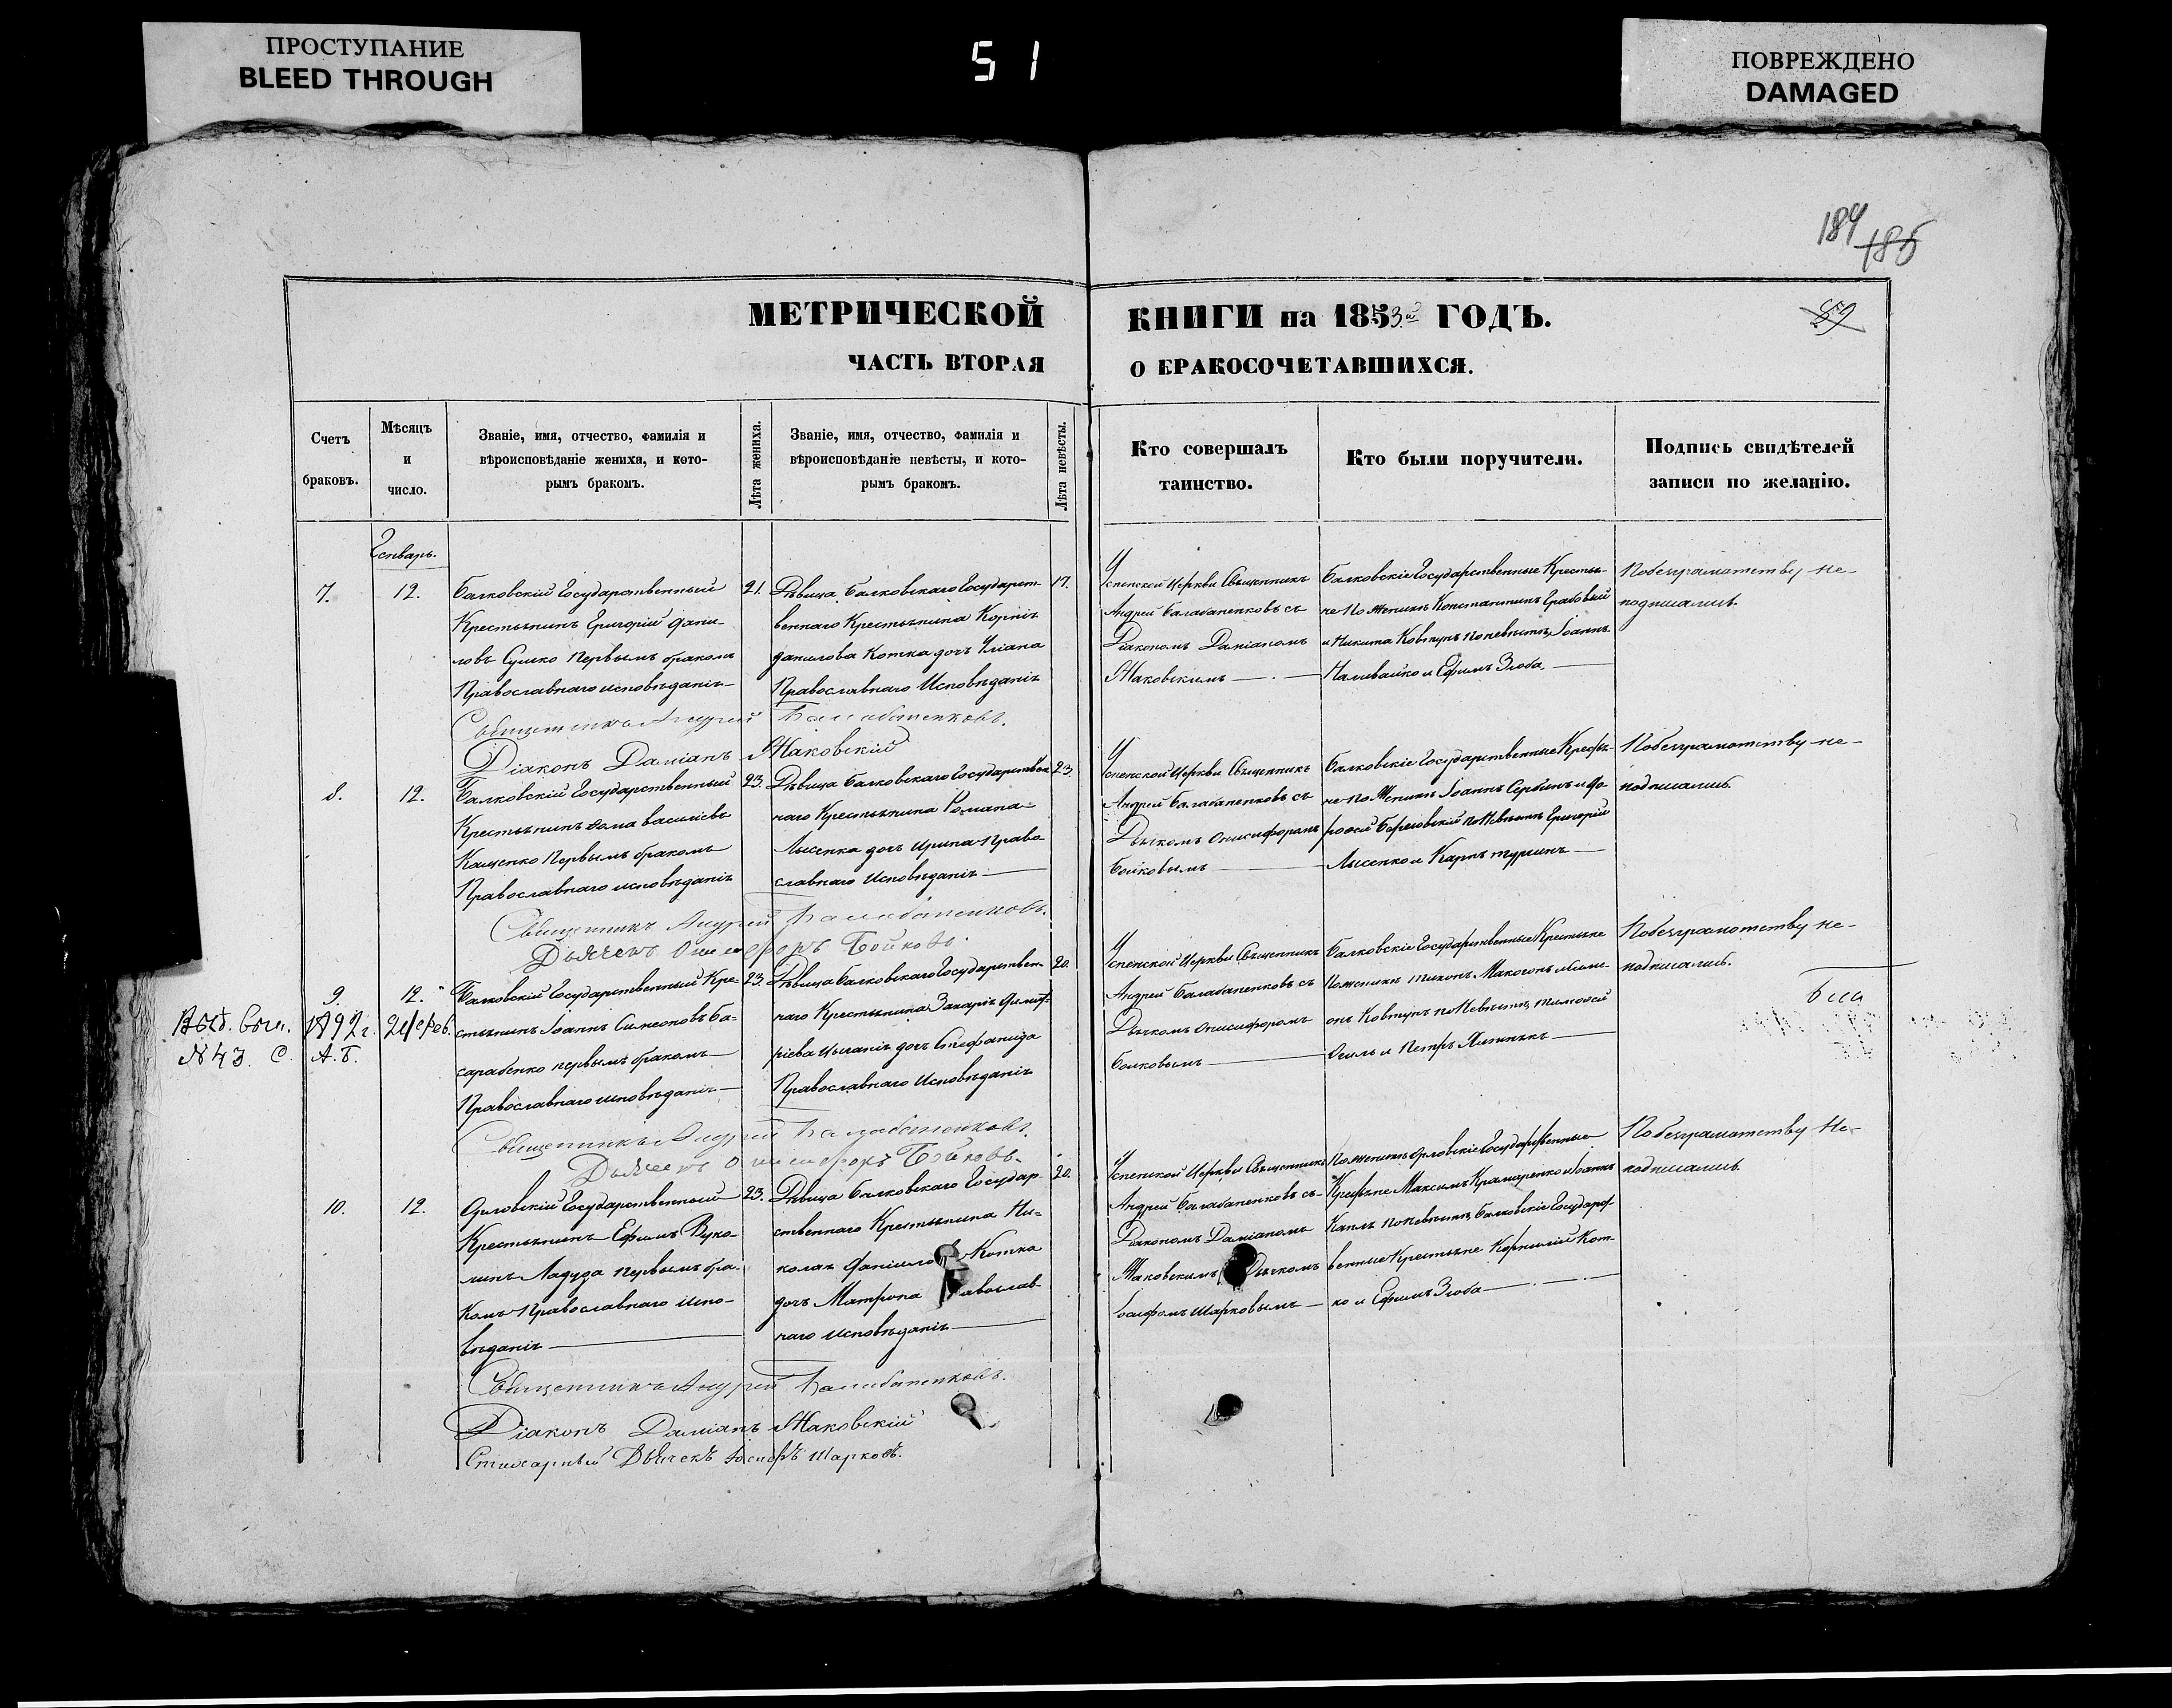 ПРОСТУПАНИЕ
BLEED THROUGH
51
ПОВРЕЖДЕНО
DAMAGED
184
185
59
МЕТРИЧЕСКОЙ КНИГИ на 1853й ГОДЪ.
ЧАСТЬ ВТОРАЯ О БРАКОСОЧЕТАВШИХСЯ.
Счетъ браковъ.
Мѣсяцъ и число.
Званіе, имя, отчество, фамилія и
вѣроисповѣданіе жениха, и кото-
рымъ бракомъ.
Лѣта жениха.
Званіе, имя, отчество, фамилія и
вѣроисповѣданіе невѣсты, и кото-
рымъ бракомъ.
Лѣта невѣсты.
Кто совершалъ
таинство.
Кто были поручители.
Подпись свидѣтелей
записи по желанію.
Генварь.
7.
12.
Балковскій Государственный
Крестьянинъ Григорій Дани-
ловъ Сушко первымъ бракомъ
Православнаго исповѣданія
21.
Дѣвица Балковскаго Государст-
веннаго Крестьянина Корнія
Данилова Котка дочь Уліана
Православнаго Исповѣданія
17.
Успенской Церкви Священникъ
Андрей Балабаненковъ съ
Діакономъ Даміаномъ
Маковскимъ
Балковскіе Государственные Крестья-
не По Женихѣ Константинъ Грабовый
и Никита Ковтунъ по невѣстѣ Іоаннъ
Наливайко и Ефимъ Злоба
По безграмотству не-
подписались.
Священникъ Андрей Балабаненковъ.
Діаконъ Даміанъ Маковскій
8.
12.
Балковскій Государственный
Крестьянинъ Фома Василіевъ
Кащенко Первымъ бракомъ
Православнаго исповѣданія
23.
Дѣвица Балковскаго Государствен
наго Крестьянина Романа
Лысенка дочь Ирина Право
славнаго Исповѣданія
23.
Успенской Церкви Священникъ
Андрей Балабаненковъ съ
Дьячкомъ Онисифоромъ
Бойковымъ
Балковскіе Государственные Крестья-
не по Женихѣ Іоаннъ Сербинъ и
по Невѣстѣ Григорій
Лысенко и Карпъ
По безграмотству не-
подписались.
Священникъ Андрей Балабаненковъ.
Дьячекъ Онисифоръ Бойковъ.
9.
12.
Балковскій Государственный Кре-
стьянинъ Іоаннъ Симеоновъ Ба-
сарабенко первымъ бракомъ
Православнаго исповѣданія
23.
Дѣвица Балковскаго Государствен-
наго Крестьянина Захарія
дочь Стефанида
Православнаго Исповѣданія
20.
Успенской Церкви Священникъ
Андрей Балабаненковъ съ
Дьячкомъ Онисифоромъ
Бойковымъ
Балковскіе Государственные Крестьяне
По женихѣ Тихонъ Макогонъ и Симе-
онъ Ковтунъ по Невѣстѣ Тимоѳей
и Петръ
По безграмотству не-
подписались.
1892 г.
№ 43 С. А.Б.
Священникъ Андрей Балабаненковъ.
Дьячекъ Онисифоръ Бойковъ.
10.
12.
Орловскій Государственный
Крестьянинъ Ефимъ Вуко-
ловъ Ладуда первымъ бра-
комъ Православнаго Испо-
вѣданія
23.
Дѣвица Балковскаго Государ-
ственнаго Крестьянина Ни-
колая Даніилова Котка
дочь Матрона авослав-
наго исповѣданія
20.
Успенской Церкви Священникъ
Андрей Балабаненковъ съ
Діакономъ Даміаномъ
Маковскимъ Дьячкомъ
Іосифомъ Шарковымъ
По женихѣ Орловскіе Государственные
Крестьяне Максимъ Крамаренко и Іоаннъ
по Невѣстѣ Балковскіе Государст-
венные Крестьяне Корнилій Кот-
ко и Ефимъ Злоба
По безграмотству не-
подписались.
Священникъ Андрей Балабаненковъ.
Діаконъ Даміанъ Маковскій
Стихарный Дьячекъ Іосифъ Шарковъ.